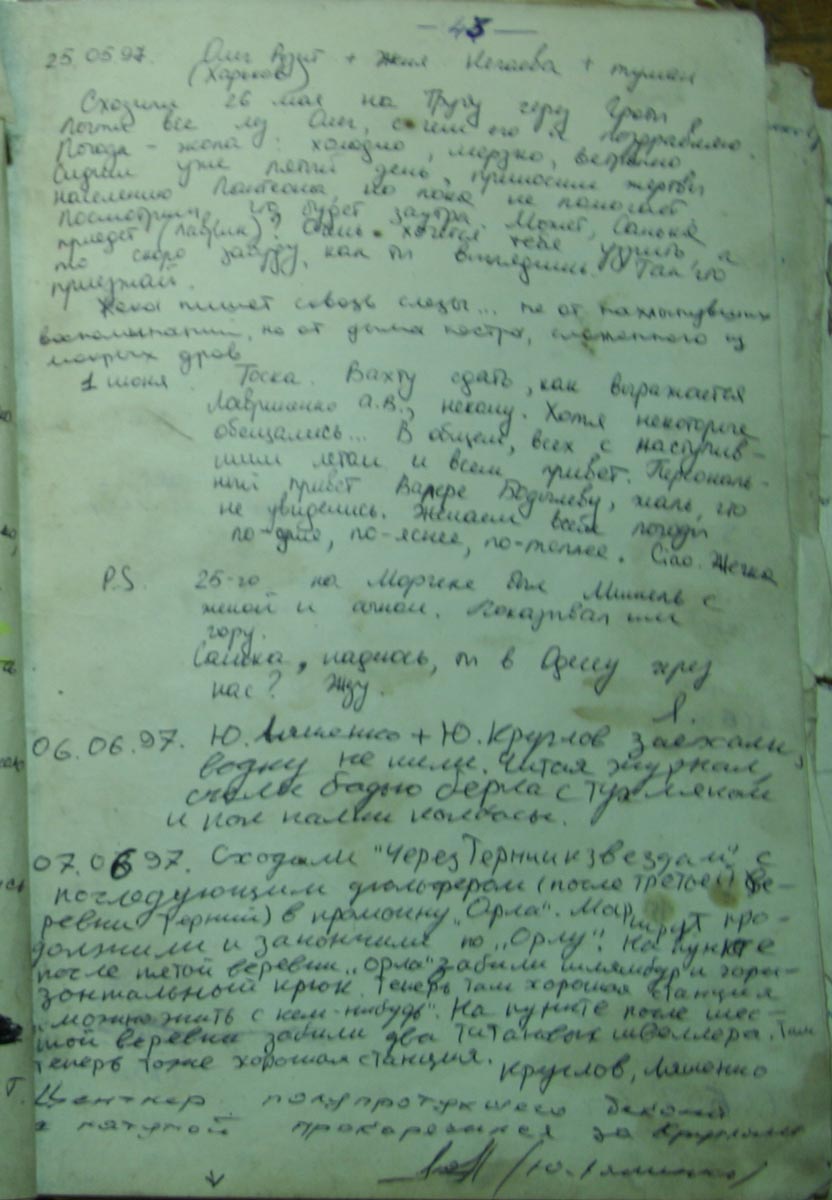 — 43 —
25.05.97. Олег Рузит + Женя Негаева + туман
(Харьков)
Сходили 26 мая на Трубу гору Грота
Почти все лез Олег, с чем его и поздравляю.
Погода – жопа: холодно, мерзко, ветрено
Сидим уже пятый день, приносим жертвы
населению Пантеона, но пока не помогает
Посмотрим, что будет завтра. Может, Санька
приедет ? Очень хочется тебя увидеть, а
то скоро забуду, как ты выглядишь. Так что
приезжай.
Жека пишет сквозь слезы... не от нахлынувших
воспоминаний, но от дыма костра, сложенного из
мокрых дров
1 июня. Тоска. Вахту сдать, как выражается
Лавриненко А.В., некому. Хотя некоторые
обещались... В общем, всех с наступив-
шим летом и всем привет. Персональ-
ный привет Валере Бодылеву, жаль, что
не увиделись. Желаем всем погоды
по-суше, по-яснее, по-теплее. Ciao. Жечка
P.S. 25-го на Морчеке был Мишель с
женой и сыном. Показывал им
гору.
Санька, надеюсь, ты в Одессу через
нас? Жду.
Я.
06.06.97. Ю.Ляшенко + Ю.Круглов заехали,
водку не пили. Читая журнал,
съели бадью борща с тушмяком
и пол палки колбасы.
07.06.97. Сходили "Через Тернии к звездам" с
последующим дюльфером (после третьей ве-
ревки Терний) в промоину „Орла". Маршрут про-
должили и закончили по „Орлу". На пункте
после пятой веревки „Орла" забили шлямбур и гори-
зонтальный крюк. Теперь там хорошая станция
„можно жить с кем-нибудь". На пункте после шес-
той веревки забили два титановых швеллера. Там
теперь тоже хорошая станция.
Круглов, Ляшенко
Центнер полупротухшего
за Круглым
(Ю.Ляшенко)